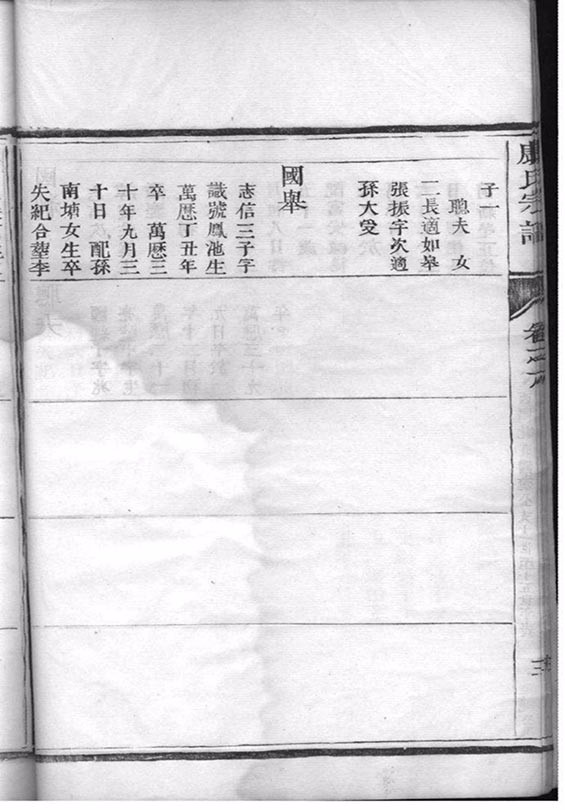 氏宗譜
卷之八
三
子一
聰夫 女
二長適如皋
張振宇次適
孫大受
國舉
志信三子字
識號鳳池生
萬曆丁丑年
卒 萬曆三
十年九月三
十日 配孫
南塘女生卒
失紀合塟李